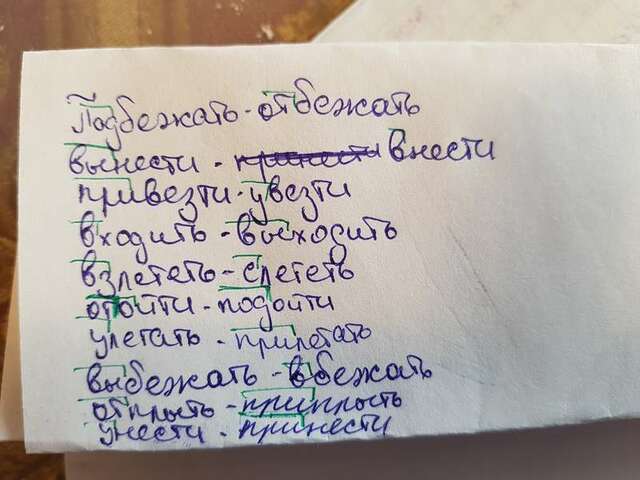 Подбежать - отбежать
вынести - принести внести
привезти - увезти
входить - выходить
взлететь - слететь
отойти - подойти
улетать - прилетать
выбежать - вбежать
отплыть - приплыть
унести - принести